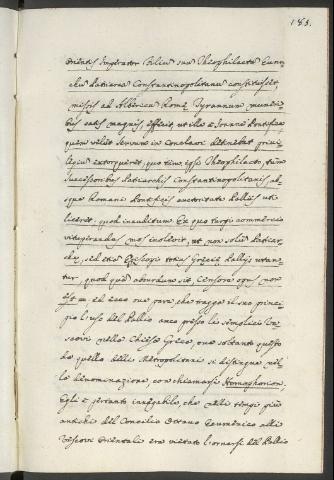 185.
Orientis Imperator filium suum Theophilactum Eunu-
chum Patriarcam Constantinopolitanum constituisset,
missis ad Albericum Romæ Tyrannum muneri-
bus satis magnis, effecit, ut ille à Ioanne Pontifice
quem velut servum in conclavi detinebat privi-
legium extorqueret, quo tum ipsi Theophilacto, tum
successoribus Patriarchis Constantinopolitanis, abs-
que Romani Pontificis auctoritate Palliis uti
liceret, quod inauditum. Ex quo turpi commercio
vituperandus mos inolevit, ut non solum Patriar-
chæ, sed etiam Episcopi totius Græciæ Palliis utan-
tur, quod quam absurdum sit, censore opus non
est =, ed ecco onde pare che tragga il suo princi-
pio l'uso del Pallio anco presso li semplici Ve-
scovi nella Chiesa Greca, onde soltanto questo
da quello delli Metropolitani si distingue nel-
la denominazione, con chiamarsi Homophorion.
Egli è pertanto innegabile, che nelli tempi più
antichi del Concilio Ottavo Ecumenico alli
Vescovi Orientali era vietato l'ornarsi del Pallio